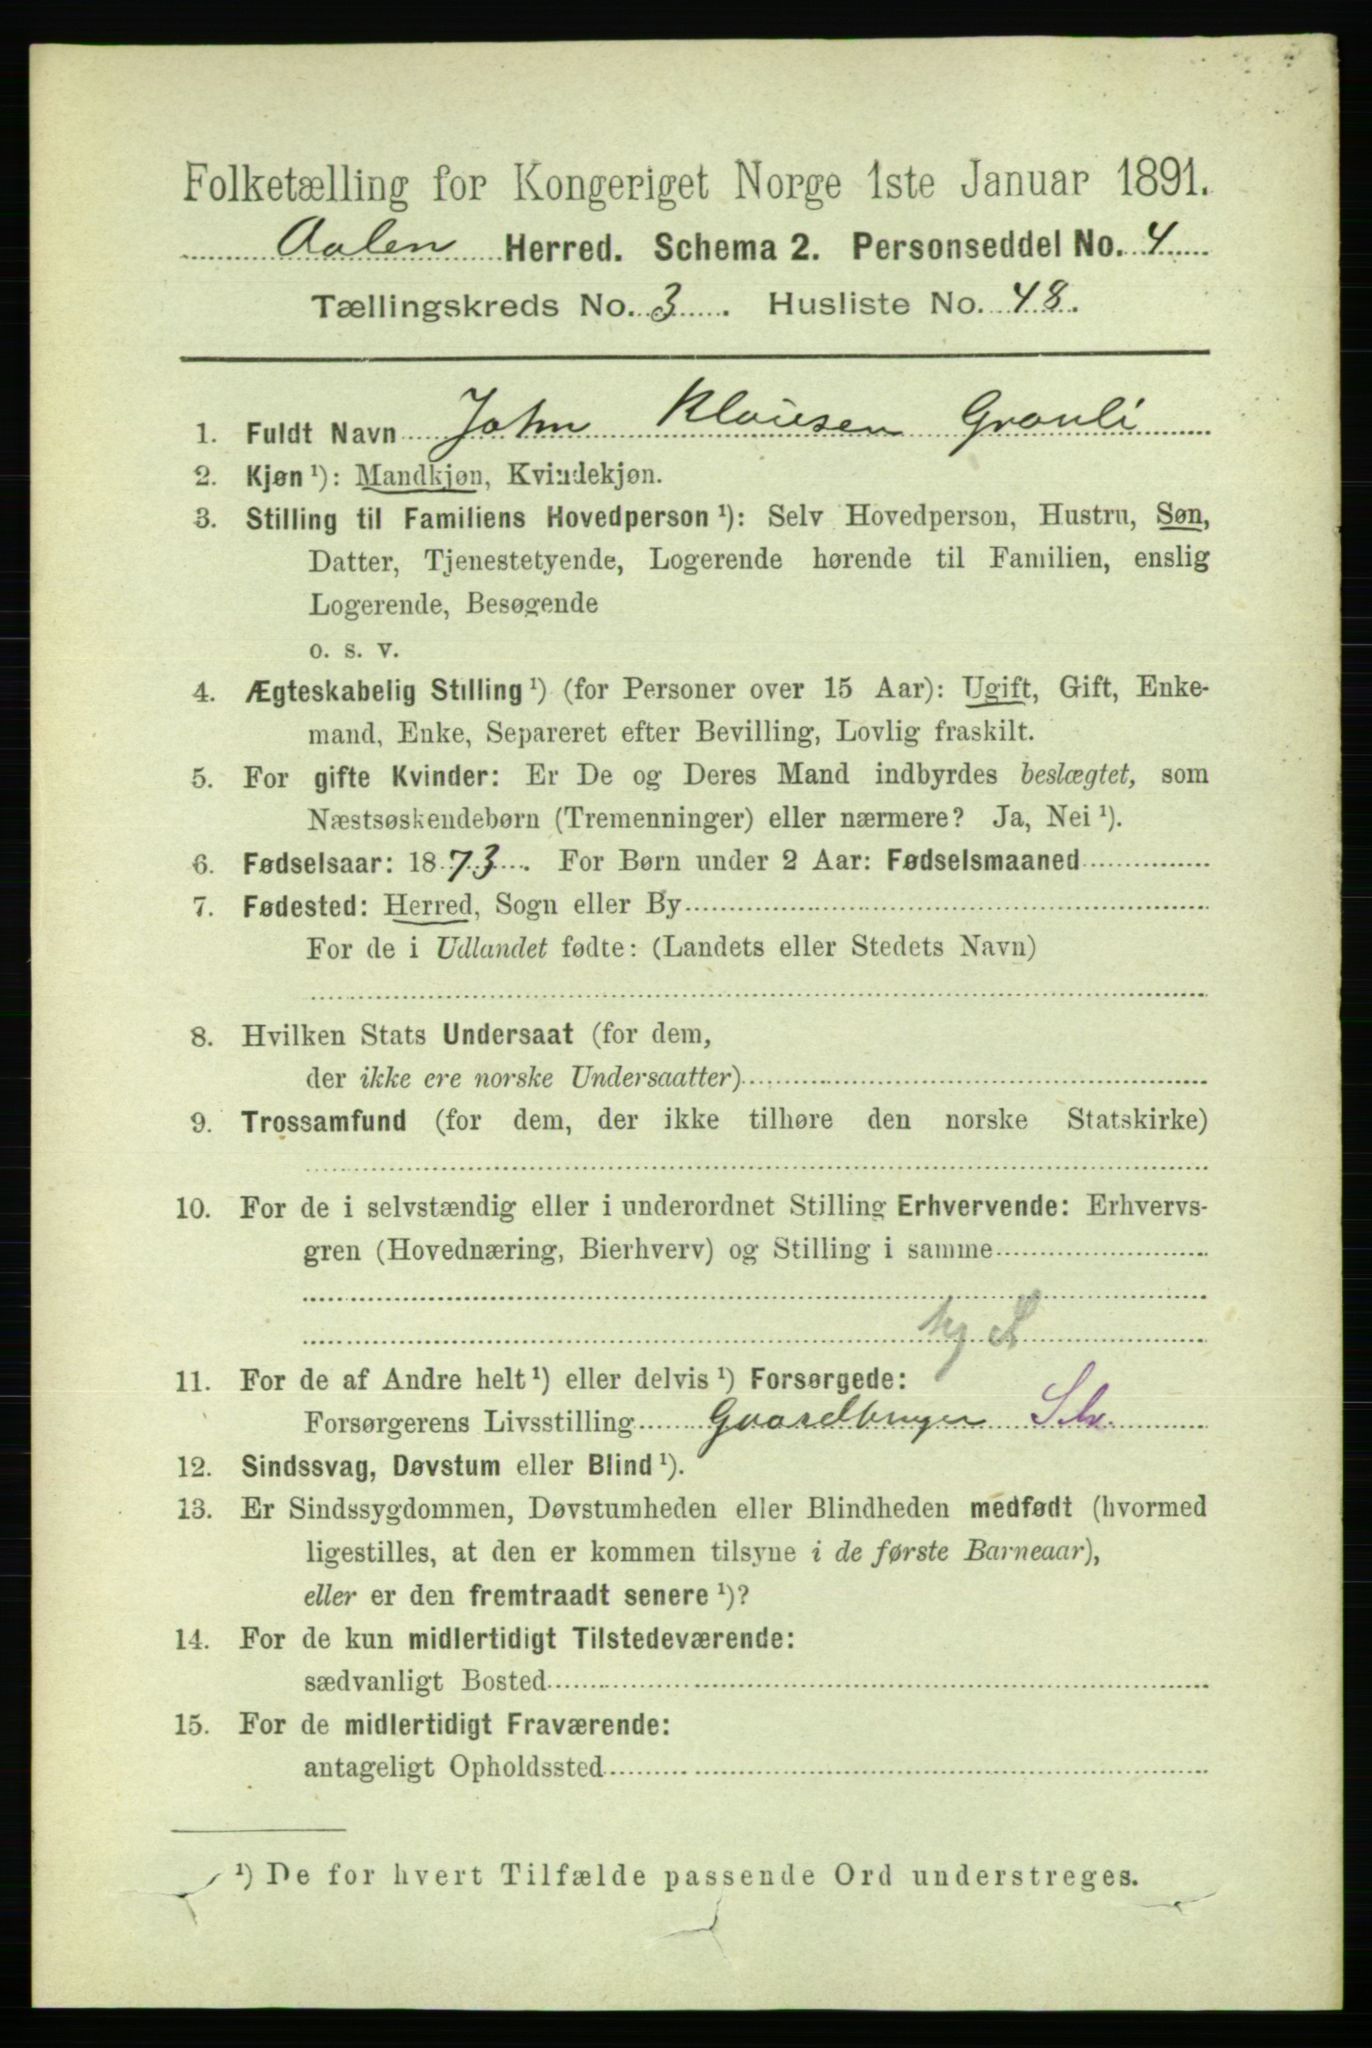 Folketælling for Kongeriget Norge 1ste Januar 1891.
Aalen Herred. Schema 2. Personseddel No. 4
Tællingskreds No. 3. Husliste No. 48.
1. Fuldt Navn John Klausen Graali
2. Kjøn ¹): Mandkjøn, Kvindekjøn.
3. Stilling til Familiens Hovedperson ¹): Selv Hovedperson, Hustru, Søn,
Datter, Tjenestetyende, Logerende hørende til Familien, enslig
Logerende, Besøgende
o. s. v.
4. Ægteskabelig Stilling ¹) (for Personer over 15 Aar): Ugift, Gift, Enke-
mand, Enke, Separeret efter Bevilling, Lovlig fraskilt.
5. For gifte Kvinder: Er De og Deres Mand indbyrdes beslægtet, som
Næstsøskendebørn (Tremenninger) eller nærmere? Ja, Nei ¹).
6. Fødselsaar: 1873. For Børn under 2 Aar: Fødselsmaaned
7. Fødested: Herred, Sogn eller By
For de i Udlandet fødte: (Landets eller Stedets Navn)
8. Hvilken Stats Undersaat (for dem,
der ikke ere norske Undersaatter)
9. Trossamfund (for dem, der ikke tilhøre den norske Statskirke)
10. For de i selvstændig eller i underordnet Stilling Erhvervende: Erhvervs-
gren (Hovednæring, Bierhverv) og Stilling i samme
11. For de af Andre helt ¹) eller delvis ¹) Forsørgede:
Forsørgerens Livsstilling Gaardbruger Selv.
12. Sindssvag, Døvstum eller Blind ¹).
13. Er Sindssygdommen, Døvstumheden eller Blindheden medfødt (hvormed
ligestilles, at den er kommen tilsyne i de første Barneaar),
eller er den fremtraadt senere ¹)?
14. For de kun midlertidigt Tilstedeværende:
sædvanligt Bosted
15. For de midlertidigt Fraværende:
antageligt Opholdssted
¹) De for hvert Tilfælde passende Ord understreges.